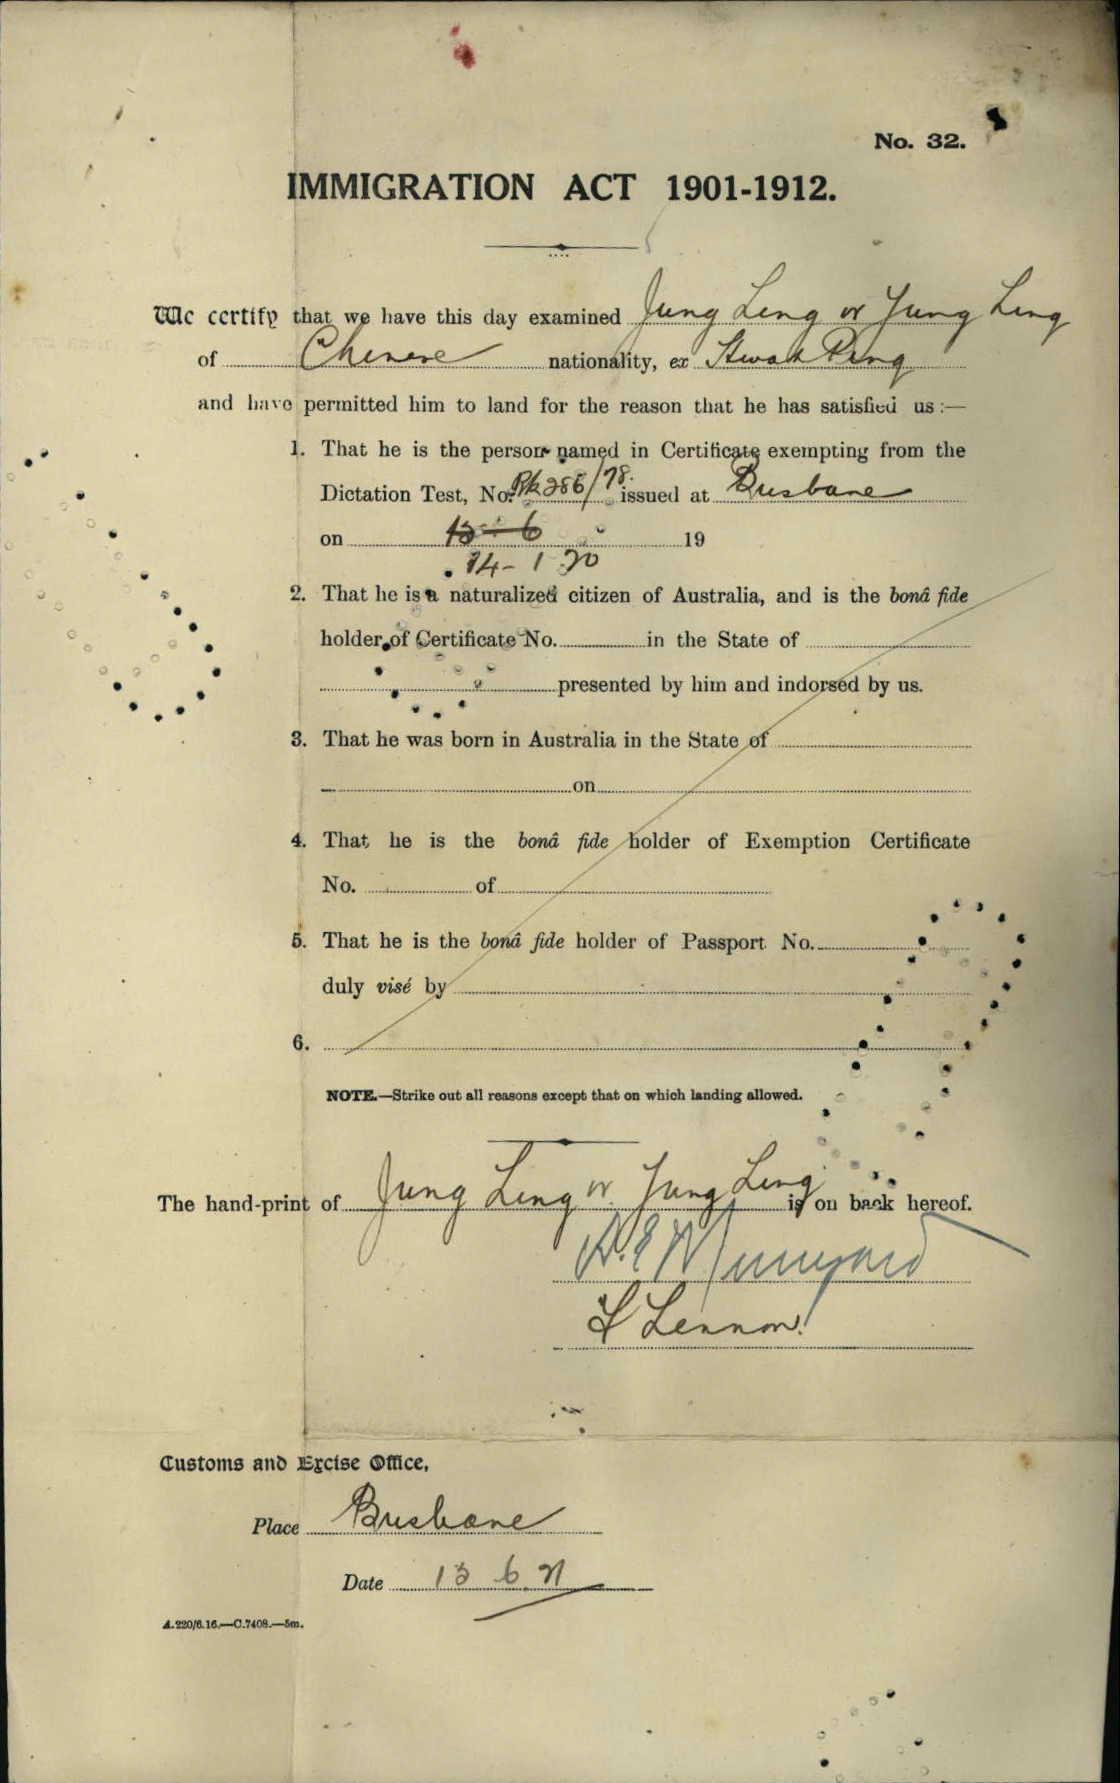 No. 32.
IMMIGRATION ACT 1901-1912.
We certify that we have this day examined Jung Ling or Yung Ling
of Chinese nationality, ex Hwah Ping
and have permitted him to land for the reason that he has satisfied us :—
1. That he is the person named in Certificate exempting from the
Dictation Test, No. Bk 286/78. issued at Brisbane
on 13 - 6 19
14 - 1 20
2. That he is a naturalized citizen of Australia, and is the bonâ fide
holder of Certificate No. in the State of
presented by him and indorsed by us.
3. That he was born in Australia in the State of
on
4. That he is the bonâ fide holder of Exemption Certificate
No. of
5. That he is the bonâ fide holder of Passport No.
duly visé by
6.
NOTE.—Strike out all reasons except that on which landing allowed.
The hand-print of Jung Ling or Yung Ling is on back hereof.
Lennon
Customs and Excise Office,
Place Brisbane
Date 13 6 21
A.220/6.16.—C.7408.—5m.